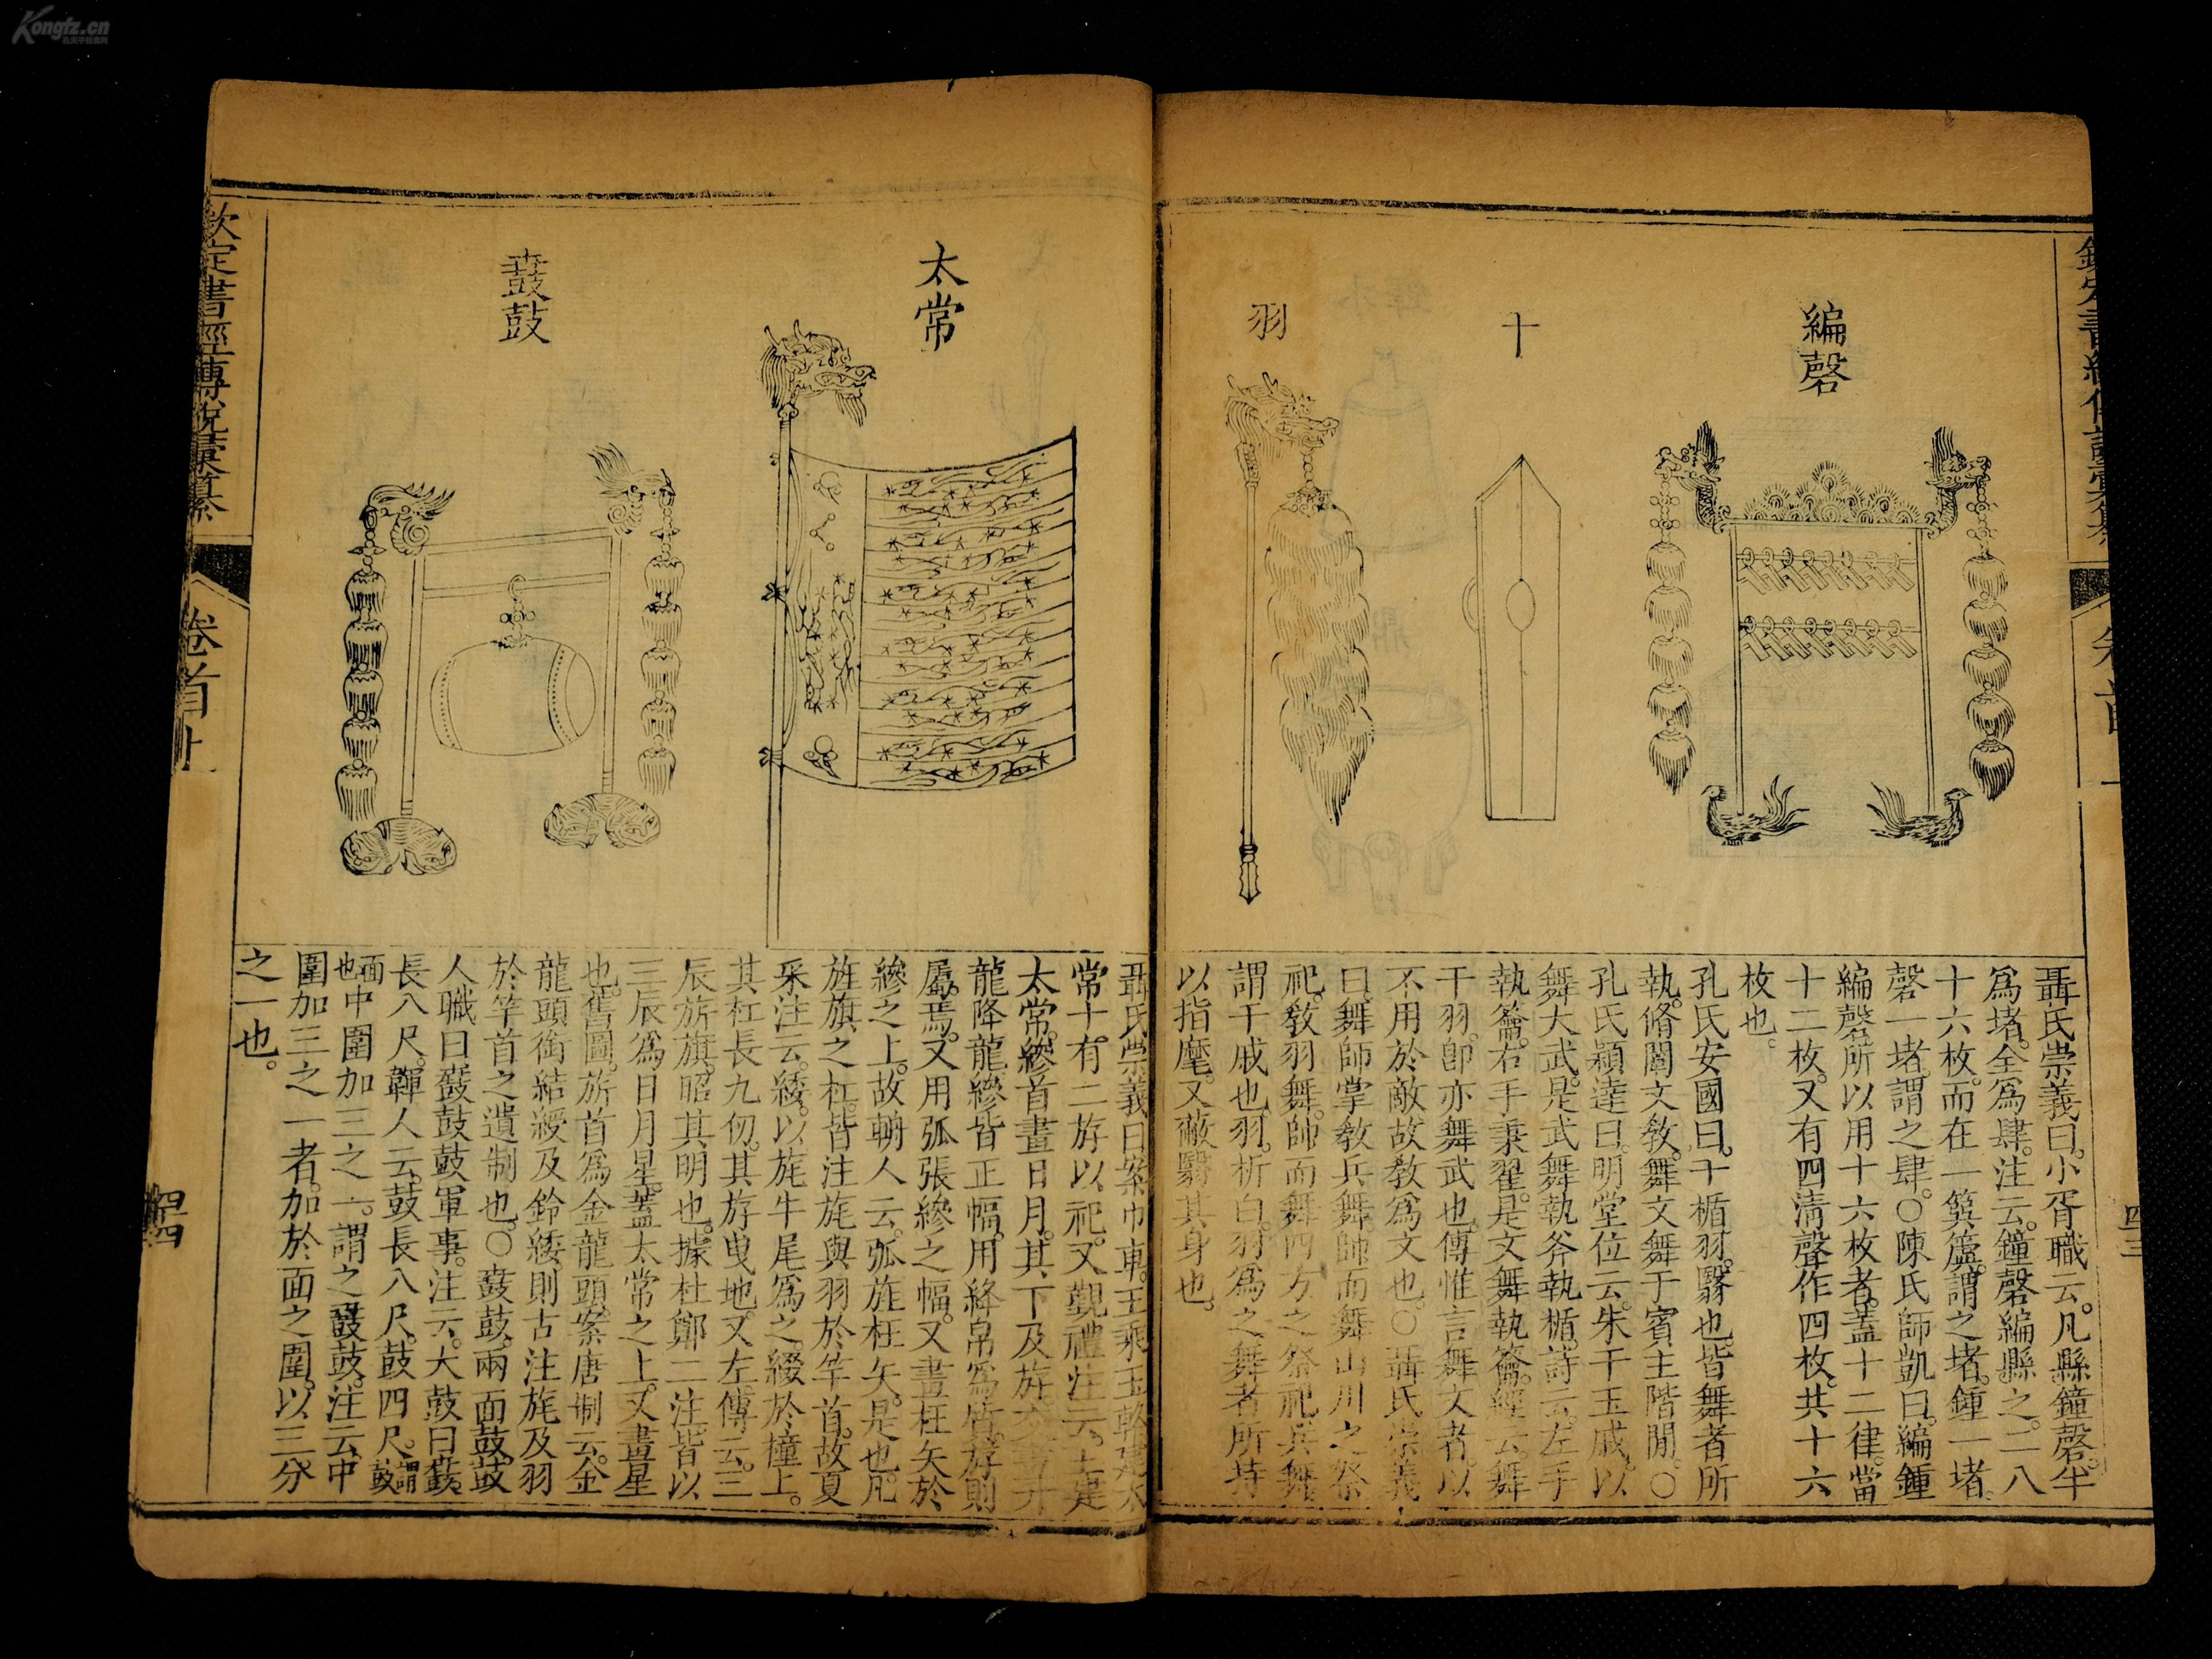 Kongfz.cn
編磬
干
羽
聶氏崇義曰。小胥職云。凡縣鐘磬。半
爲堵。全爲肆。注云。鐘磬編縣之。二八
十六枚。而在一簨簴。謂之堵。鍾一堵。
磬一堵。謂之肆。○陳氏師凱曰。編鍾
編磬所以用十六枚者。蓋十二律。當
十二枚。又有四清聲作四枚。共十六
枚也。
孔氏安國曰。干楯。羽翳也。皆舞者所
執。脩闡文敎。舞文舞于賓主階閒。○
孔氏穎達曰。明堂位云。朱干玉戚。以
舞大武。是武舞執斧執楯。詩云。左手
執籥。右手秉翟。是文舞執籥。經云。舞
干羽。卽亦舞武也。傳惟言舞文者。以
不用於敵故敎爲文也。○聶氏崇義
曰。舞師掌敎兵舞。帥而舞山川之祭
祀。敎羽舞。帥而舞四方之祭祀。兵舞
謂干戚也。羽。析白羽爲之。舞者所持
以指麾。又蔽翳其身也。
四三
太常
鼖鼓
聶氏崇義曰。案巾車。王乘玉輅。建太
常十有二斿以祀。又覲禮注云。王建
太常。縿首畫日月。其下及斿。交畫升
龍降龍。縿皆正幅。用絳帛爲質。斿則
屬焉。又用弧張縿之幅。又畫枉矢於
縿之上。故輈人云。弧旌枉矢。是也。凡
旌旗之杠。皆注旄與羽於竿首。故夏
采注云。緌以旄牛尾爲之。綴於橦上。
其杠長九仞。其斿曳地。又左傳云。三
辰旂旗。昭其明也。據杜鄭二注。皆以
三辰爲日月星。蓋太常之上。又畫星
也。舊圖。旂首爲金龍頭。案唐制云。金
龍頭銜結綬及鈴緌。則古注旄及羽
於竿首之遺制也。○鼖鼓。兩面鼓。鼓
人職曰。鼖鼓鼓軍事。注云。大鼓曰鼖。
長八尺。韗人云。鼓長八尺。鼓四尺。謂鼓
面也中圍加三之一。謂之鼖鼓。注云。中
圍加三之一者。加於面之圍。以三分
之一也。
欽定書經傳說彙纂
卷首上
四四